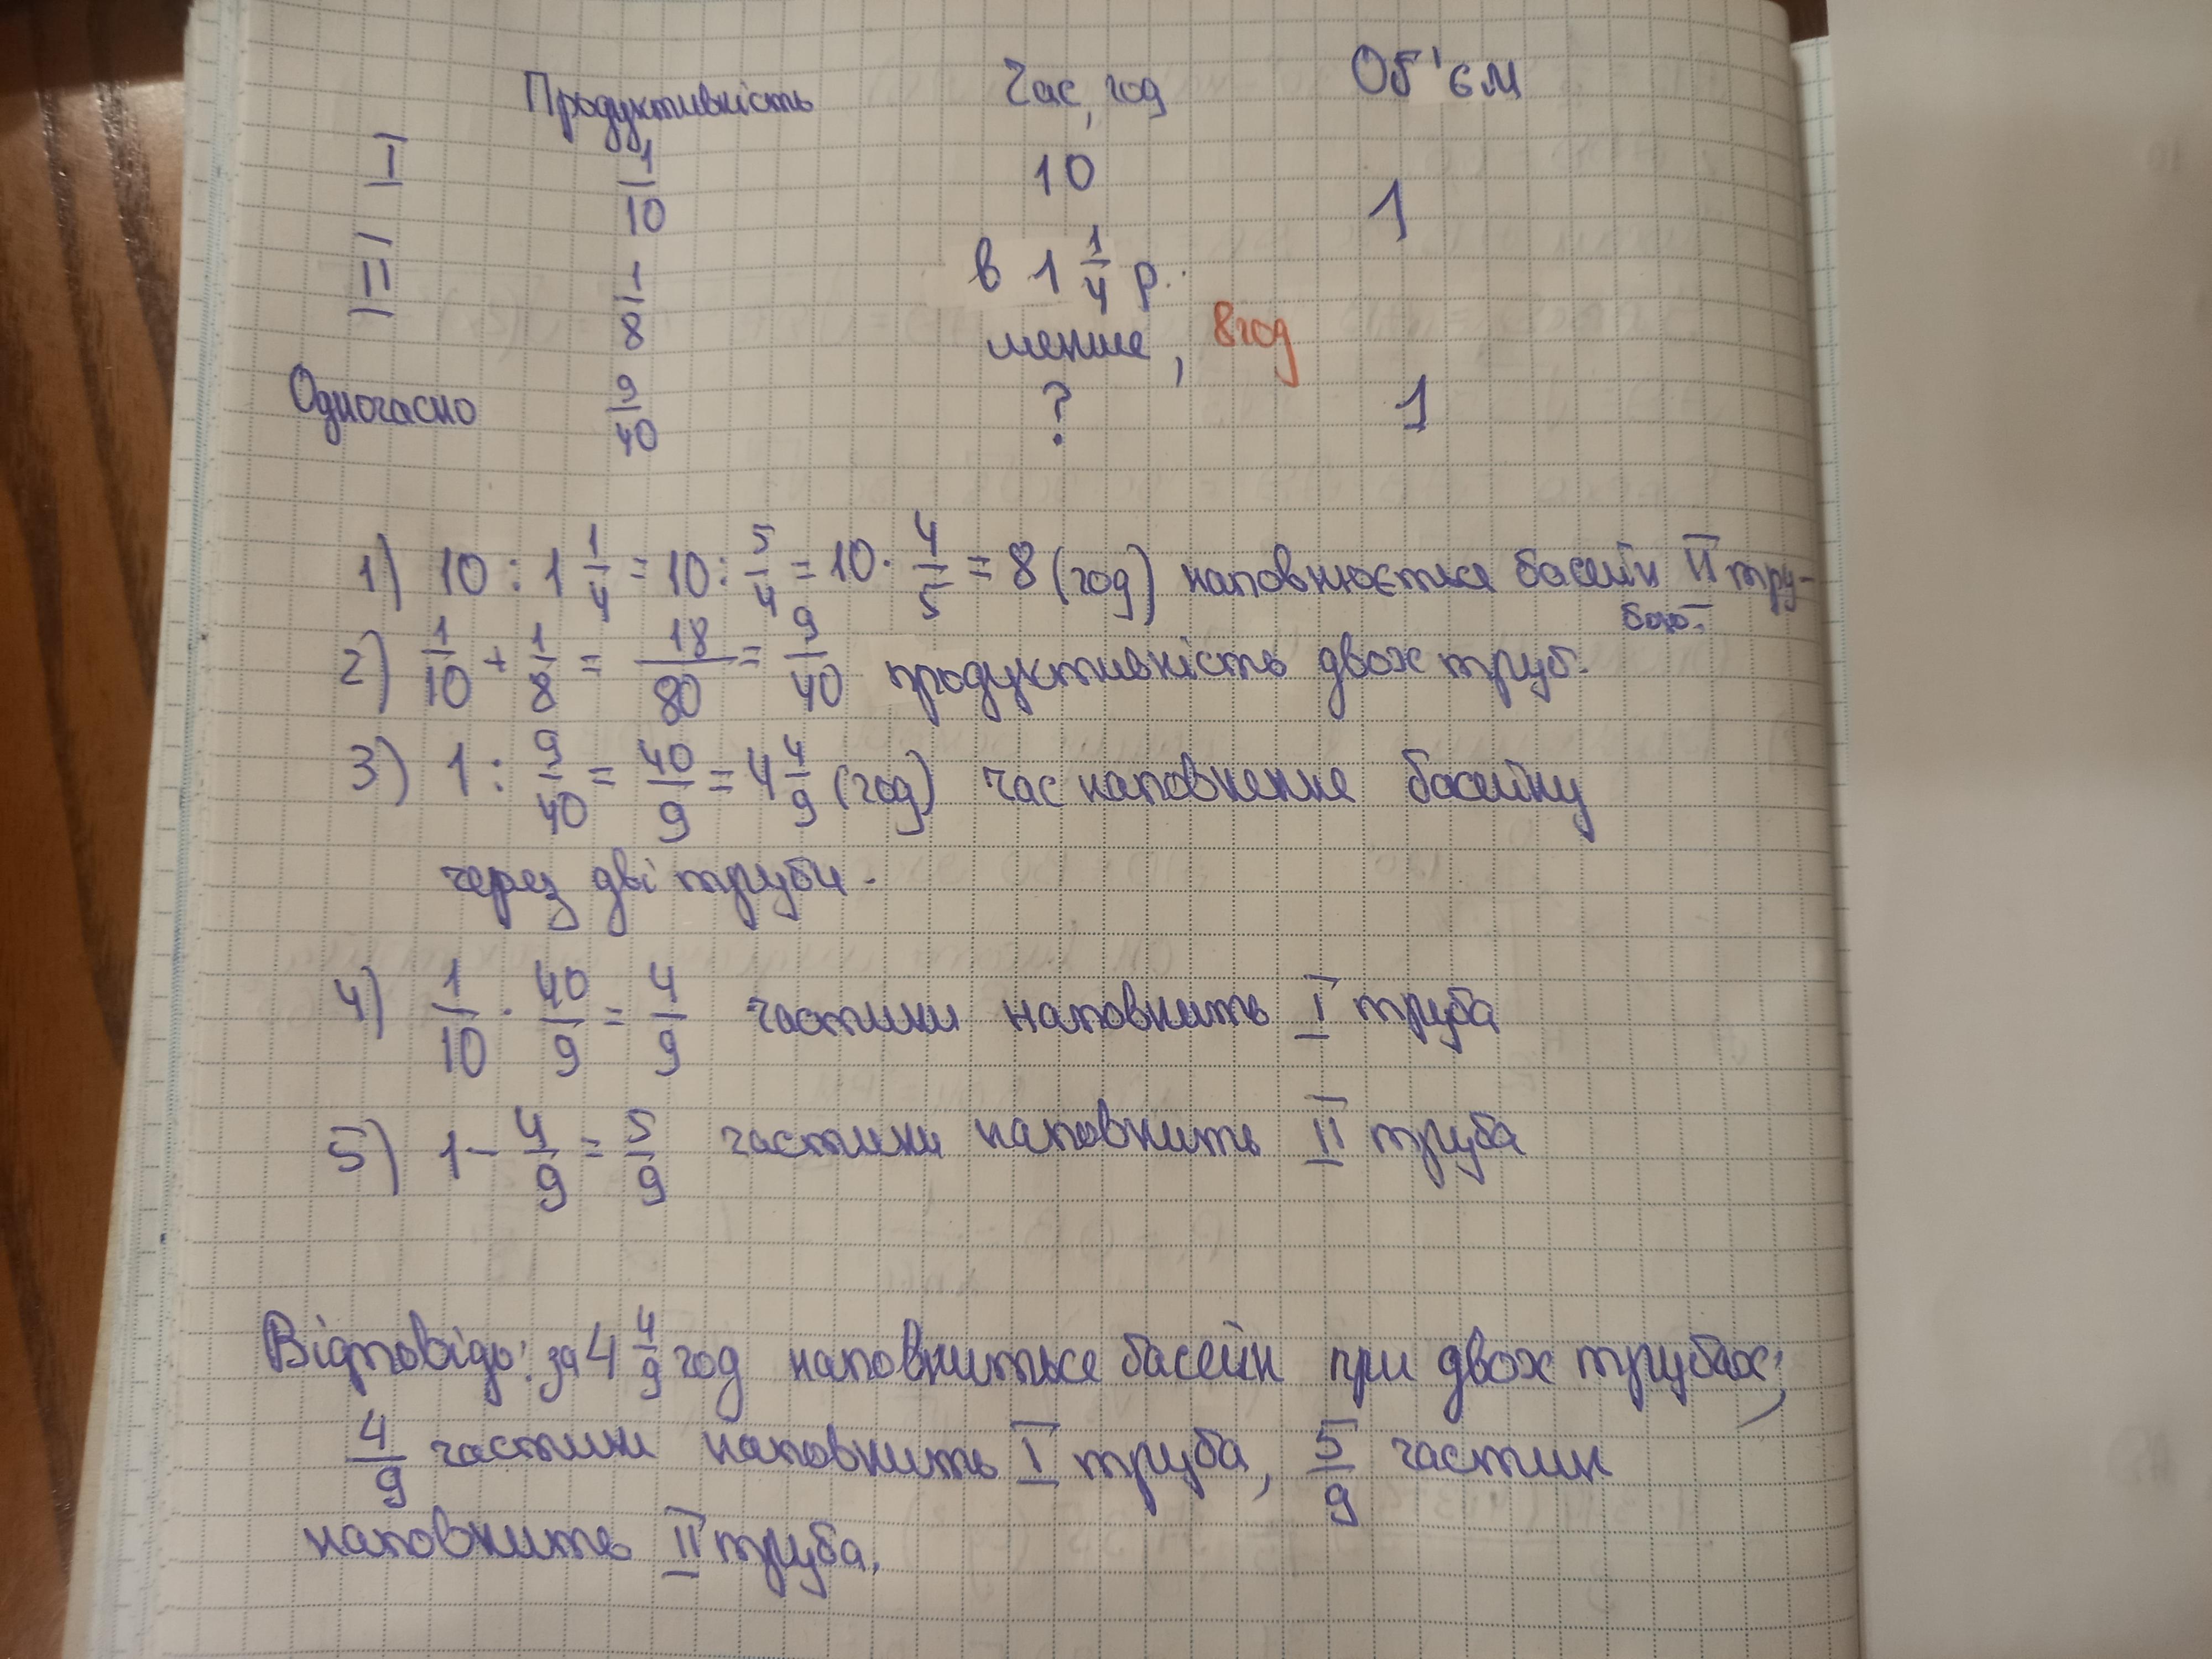 Продуктивність Час, год Об'єм
I 1/10 10 1
II 1/8 в 1 1/4 р.
менше, 8год
Одночасно 9/40 ? 1
1) 10 : 1 1/4 = 10 : 5/4 = 10 · 4/5 = 8 (год) наповнюється басейн II тру-
бою.
2) 1/10 + 1/8 = 18/80 = 9/40 продуктивність двох труб.
3) 1 : 9/40 = 40/9 = 4 4/9 (год) час наповнення басейну
через дві труби.
4) 1/10 · 40/9 = 4/9 частини наповнить I труба
5) 1 - 4/9 = 5/9 частини наповнить II труба
Відповідь: за 4 4/9 год наповниться басейн при двох трубах;
4/9 частини наповнить I труба, 5/9 частин
наповнить II труба.